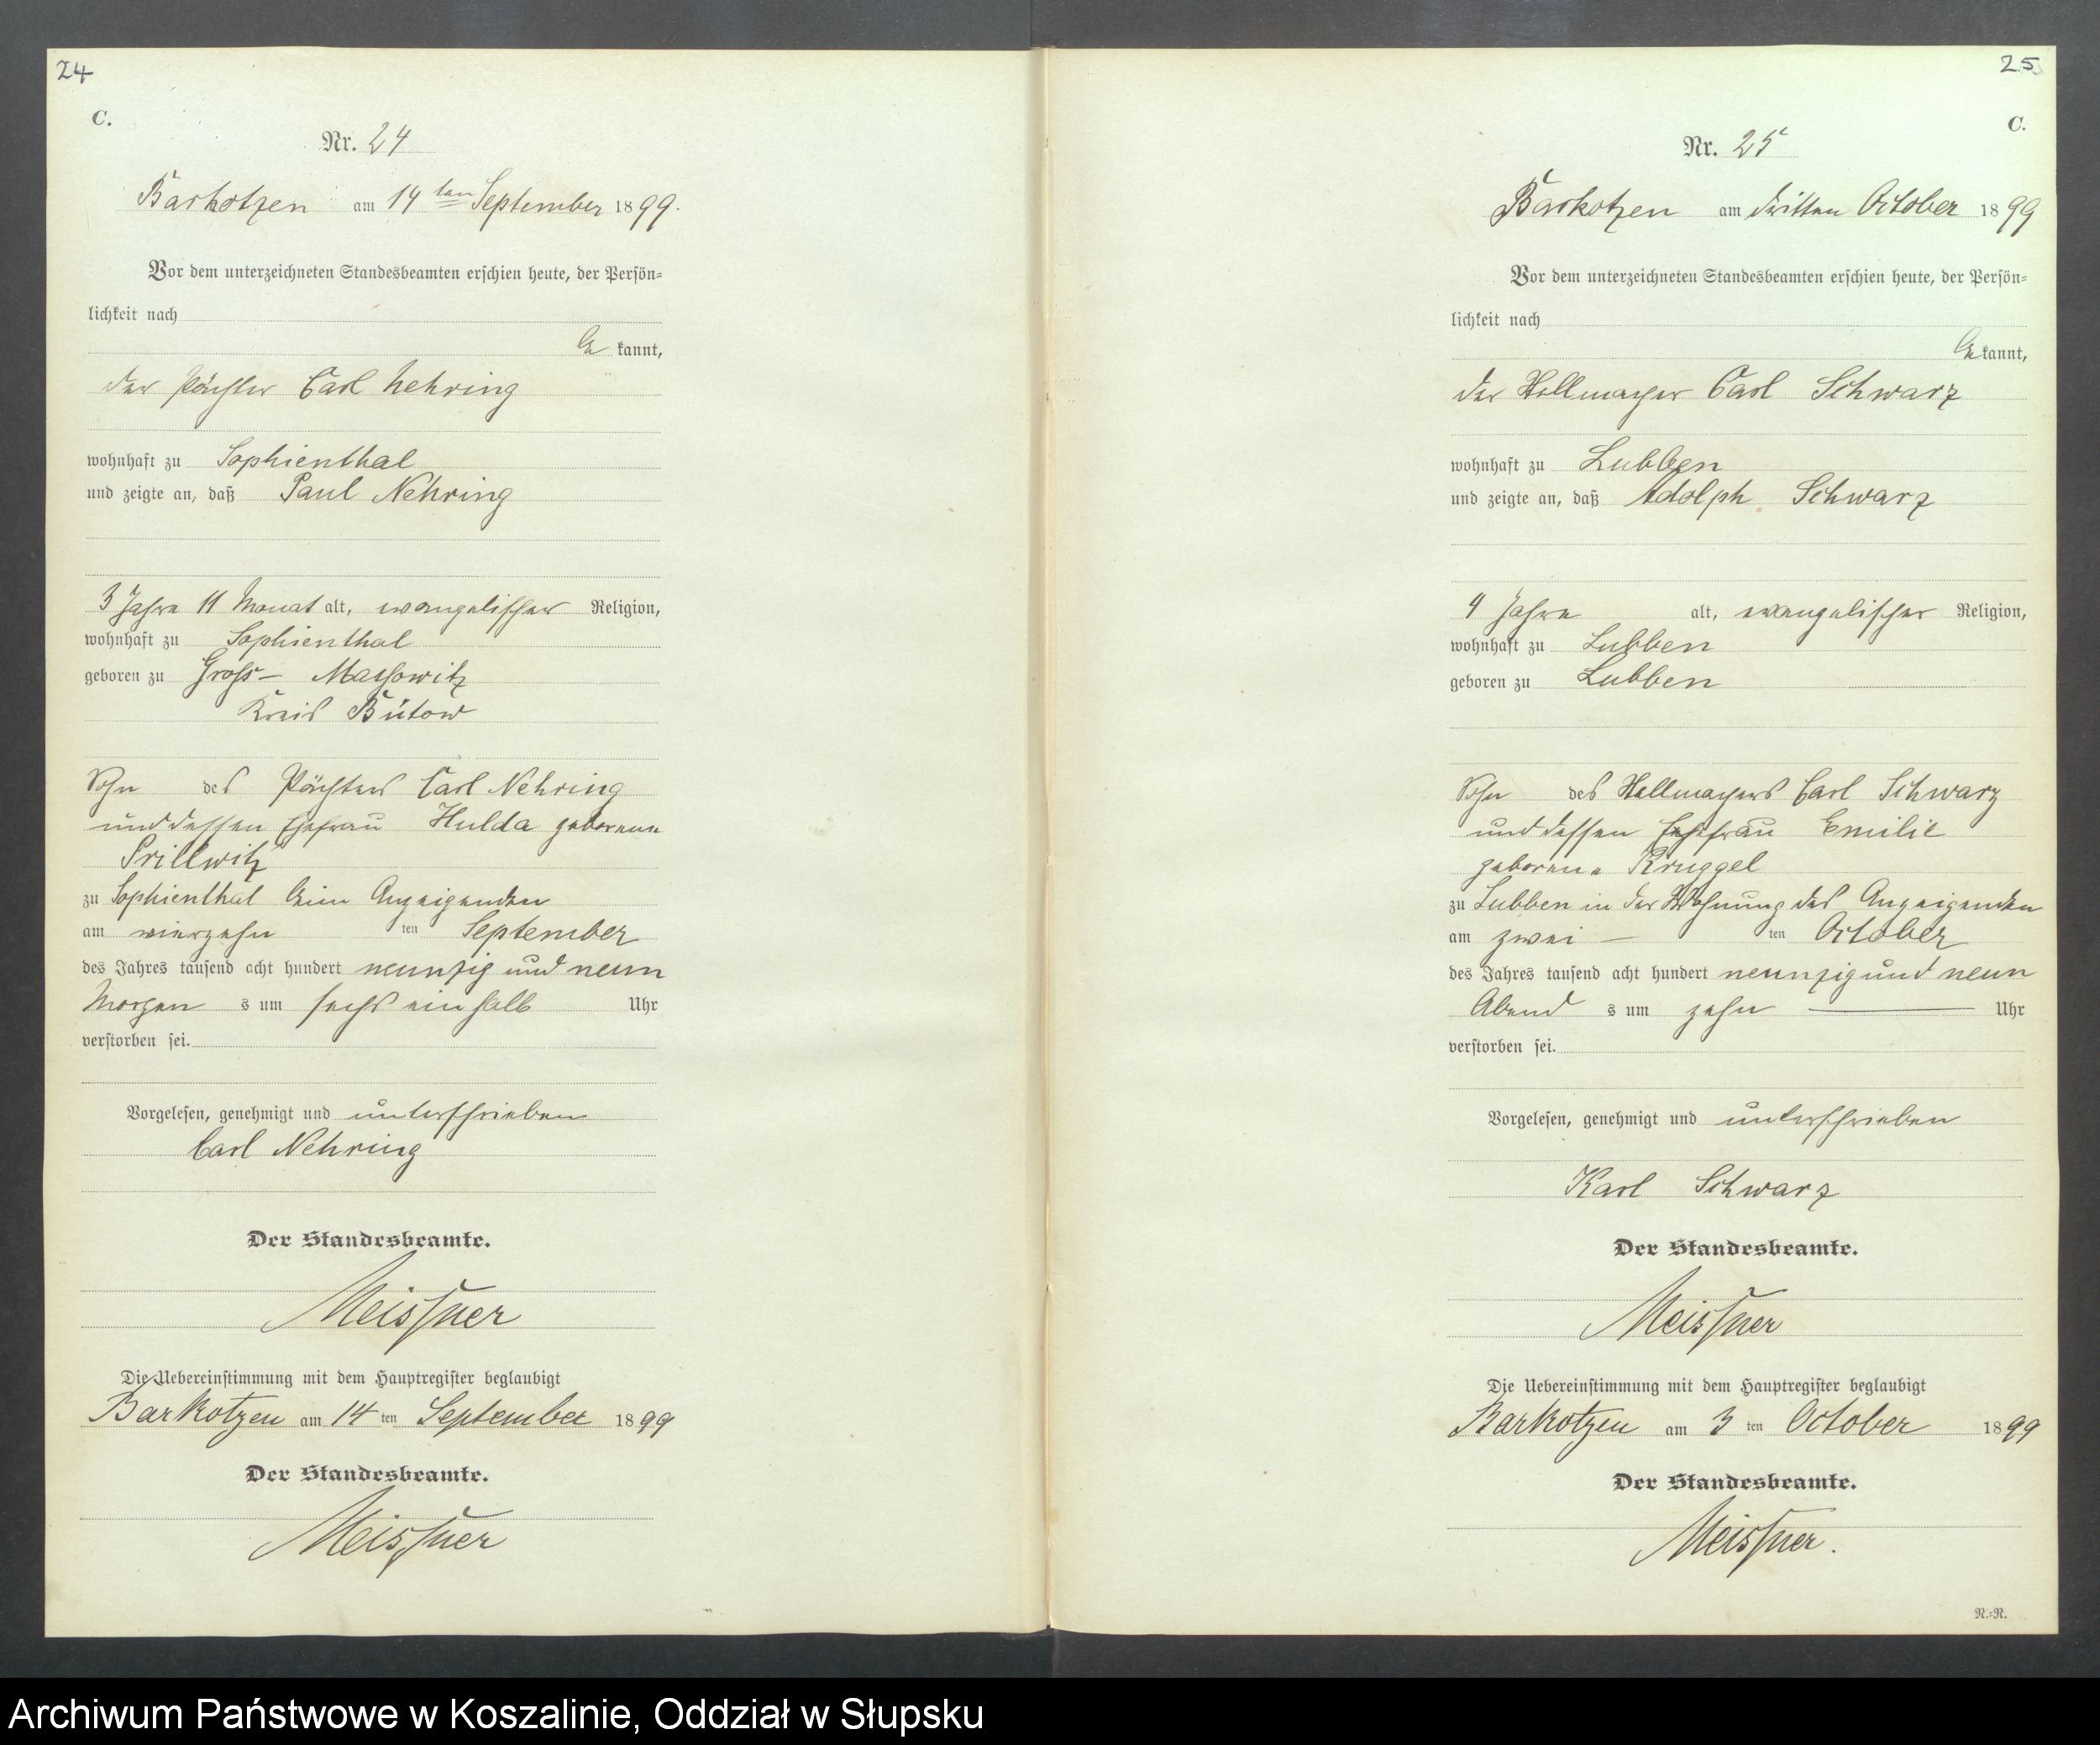 24
C.
Nr. 24
Barkotzen am 14 ten September 1899.
Vor dem unterzeichneten Standesbeamten erschien heute, der Persön=
lichkeit nach
be kannt,
der Pächter Carl Nehring
wohnhaft zu Sophienthal
und zeigte an, daß Paul Nehring
3 Jahre 11 Monat alt, evangelischer Religion,
wohnhaft zu Sophienthal
geboren zu Groß- Massowitz
Kreis Bütow
Sohn des Pächters Carl Nehring
und dessen Ehefrau Hulda geborene
Prillwitz
zu Sophienthal beim Anzeigenden
am vierzehn ten September
des Jahres tausend acht hundert neunzig und neun
Morgen s um sechs ein halb Uhr
verstorben sei.
Vorgelesen, genehmigt und unterschrieben
Carl Nehring
Der Standesbeamte.
Meissner
Die Uebereinstimmung mit dem Hauptregister beglaubigt
Barkotzen am 14 ten September 1899
Der Standesbeamte.
Meissner
25
C.
Nr. 25
Barkotzen am dritten October 1899
Vor dem unterzeichneten Standesbeamten erschien heute, der Persön=
lichkeit nach
be kannt,
der Carl Schwarz
wohnhaft zu Lubben
und zeigte an, daß Adolph Schwarz
4 Jahre alt, evangelischer Religion,
wohnhaft zu Lubben
geboren zu Lubben
Sohn des Carl Schwarz
und dessen Ehefrau Emilie
geborene Kruggel
zu Lubben in der Wohnung des Anzeigenden
am zwei — ten October
des Jahres tausend acht hundert neunzig und neun
Abend s um zehn — Uhr
verstorben sei.
Vorgelesen, genehmigt und unterschrieben
Karl Schwarz
Der Standesbeamte.
Meissner
Die Uebereinstimmung mit dem Hauptregister beglaubigt
Barkotzen am 3 ten October 1899
Der Standesbeamte.
Meissner.
N.=N.
Archiwum Państwowe w Koszalinie, Oddział w Słupsku